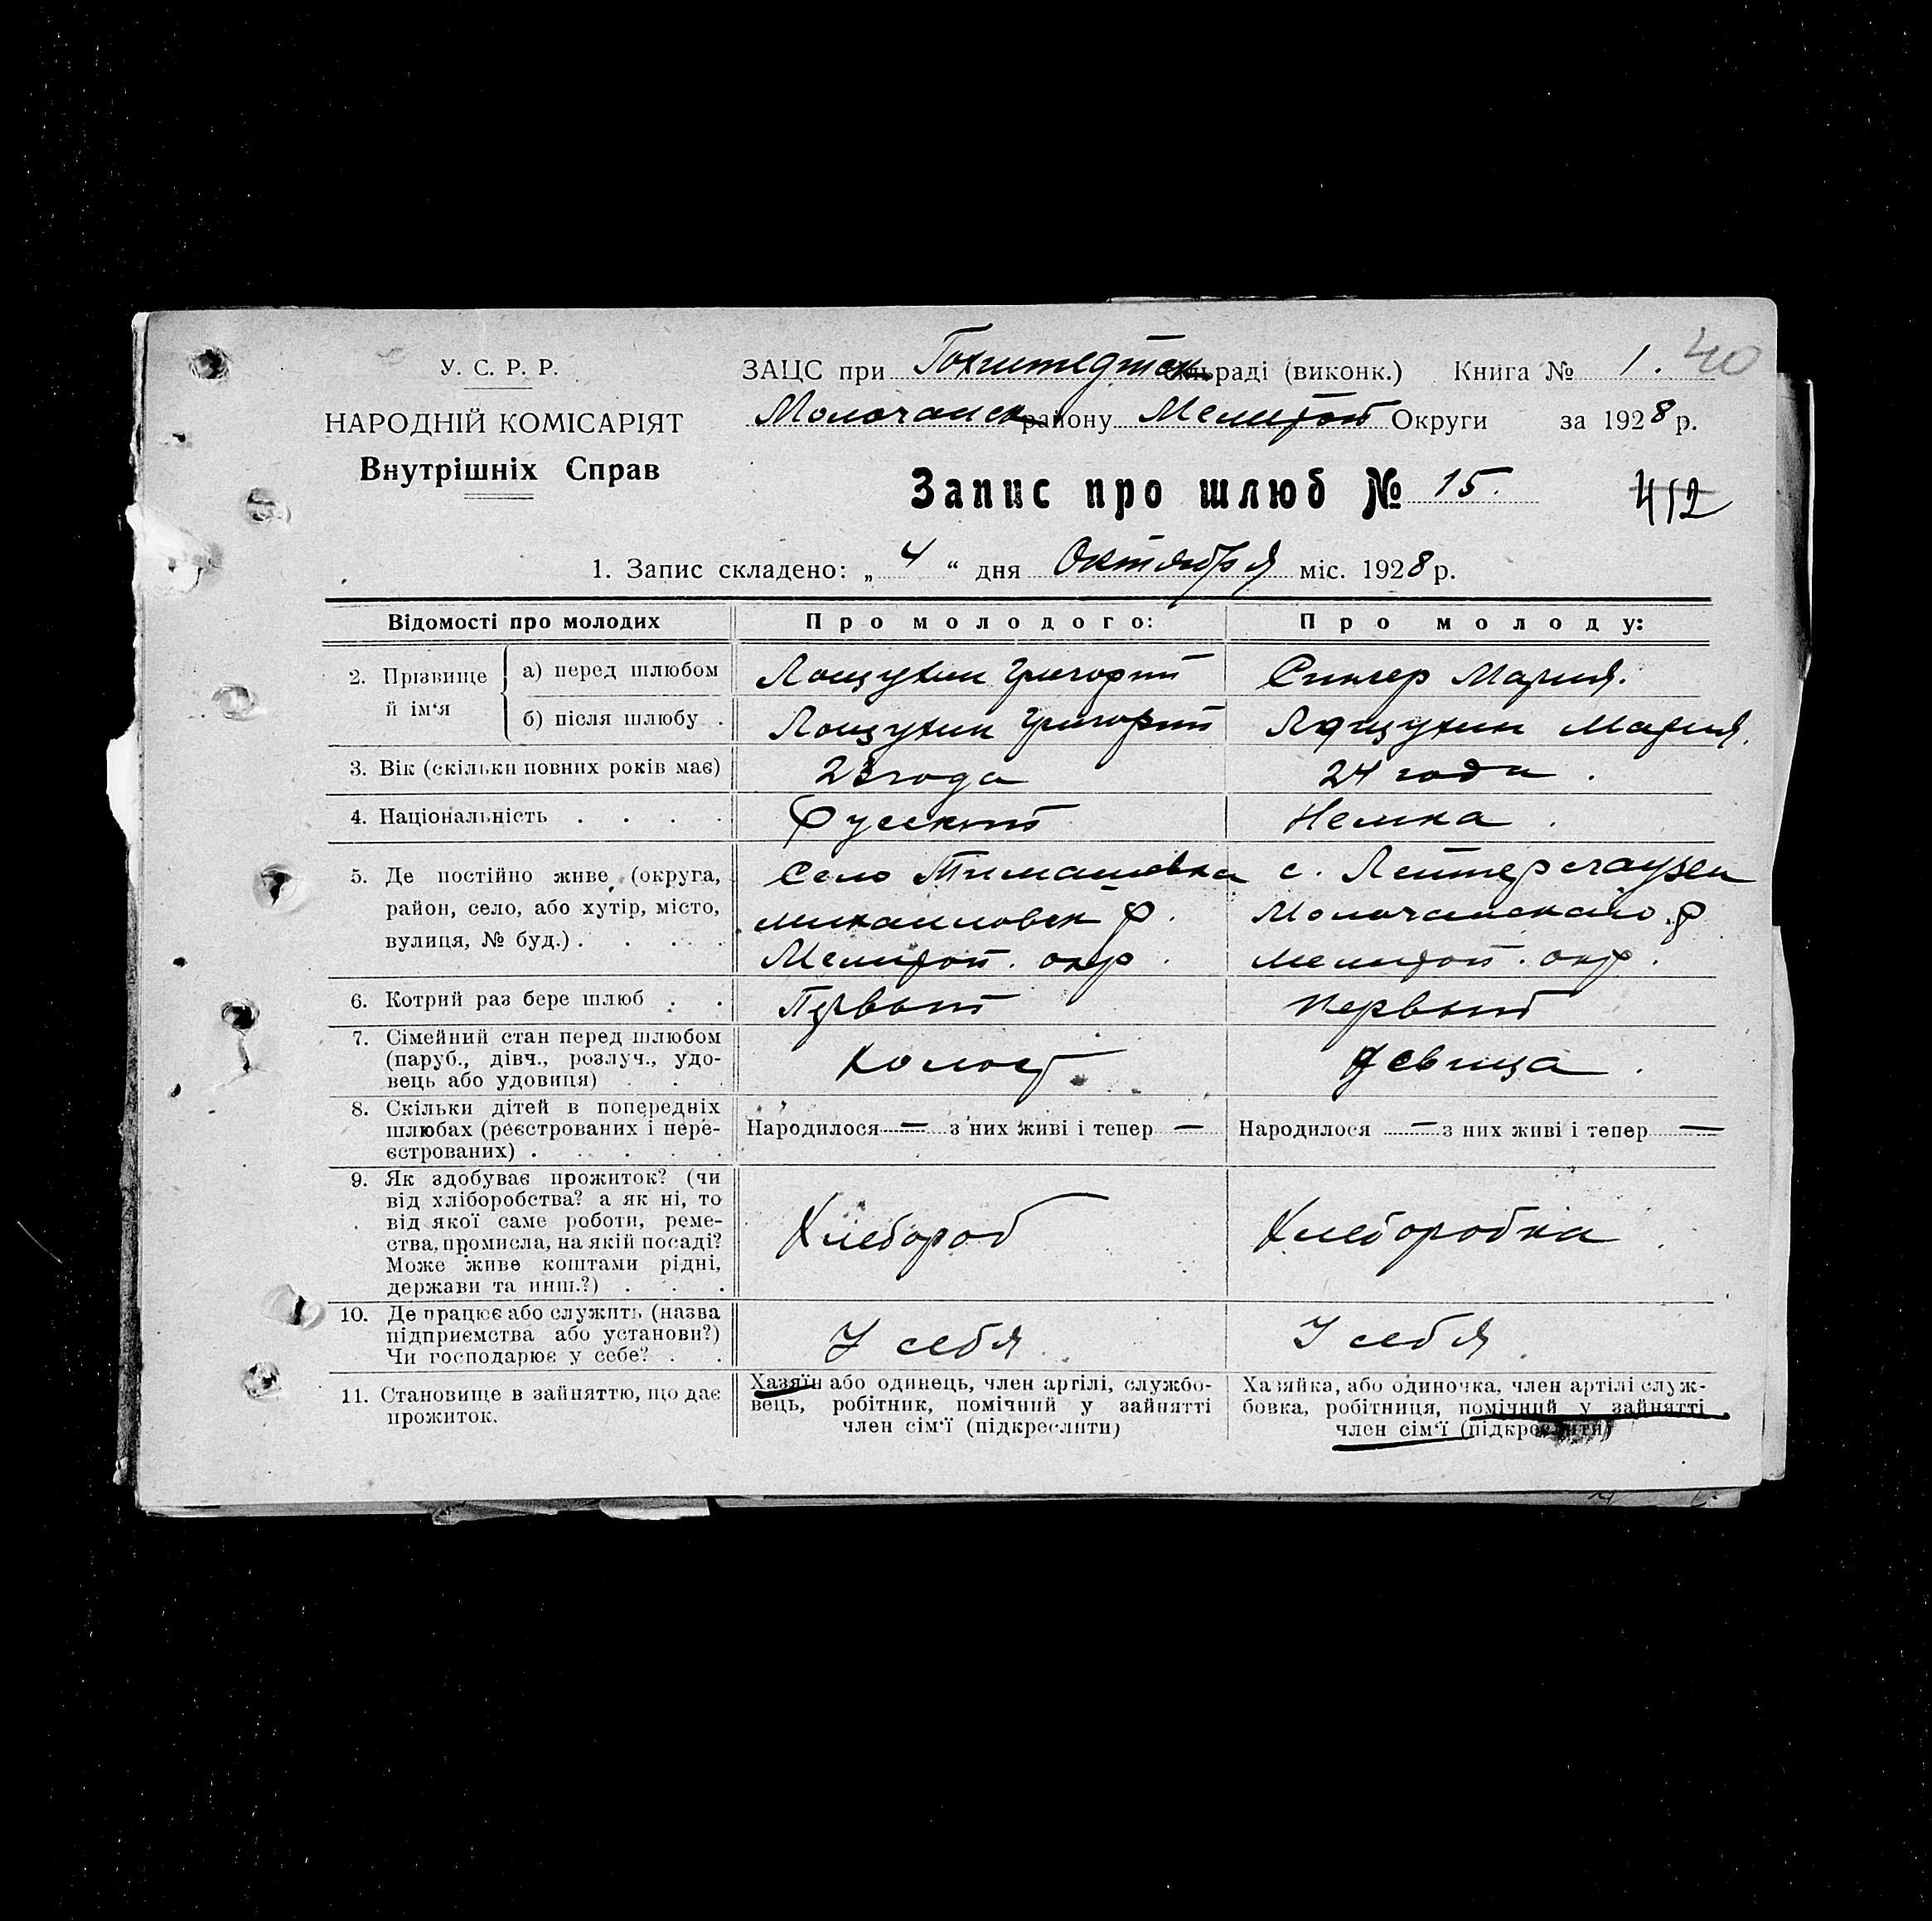 У. С. Р. Р.
НАРОДНІЙ КОМІСАРІЯТ
Внутрішніх Справ
ЗАЦС при Гохштедтск раді (виконк.) Книга № 1. 40
Молочанск району Мелитоп Округи за 1928 р.
Запис про шлюб № 15. 412
1. Запис складено: „ 4 “ дня Октября міс. 1928 р.
Відомості про молодих Про молодого: Про молоду:
2. Прізвище й ім‘я
а) перед шлюбом Лощухин Григорий Сингер Мария.
б) після шлюбу . Лощухин Григорий Лощухин Мария.
3. Вік (скільки повних років має) 23 года 24 года .
4. Національність . . . . Русский Немка .
5. Де постійно живе (округа,
район, село, або хутір, місто,
вулиця, № буд.) . . . .
Село Тимашовка
михаиловск р.
Мелитоп. окр.
с. Лейтерсгаузен
Молочанского р
мелитоп. окр.
6. Котрий раз бере шлюб . . Первый первый
7. Сімейний стан перед шлюбом
(паруб., дівч., розлуч., удо-
вець або удовиця) . . .
холост девица .
8. Скільки дітей в попередніх
шлюбах (реєстрованих і нере-
єстрованих) . . . . .
Народилося — з них живі і тепер —
Народилося — з них живі і тепер —
9. Як здобуває прожиток? (чи
від хліборобства? а як ні, то
від якої саме роботи, реме-
ства, промисла, на якій посаді?
Може живе коштами рідні,
держави та инш.?) . . .
Хлебороб Хлеборобка .
10. Де працює або служить (назва
підприємства або установи?)
Чи господарює у себе? . .
У себя У себя .
11. Становище в зайняттю, що дає
прожиток.
Хазяїн або одинець, член артілі, службо-
вець, робітник, помічний у зайнятті
член сім‘ї (підкреслити)
Хазяйка, або одиночка, член артілі служ-
бовка, робітниця, помічний у зайнятті
член сім‘ї (підкреслити)